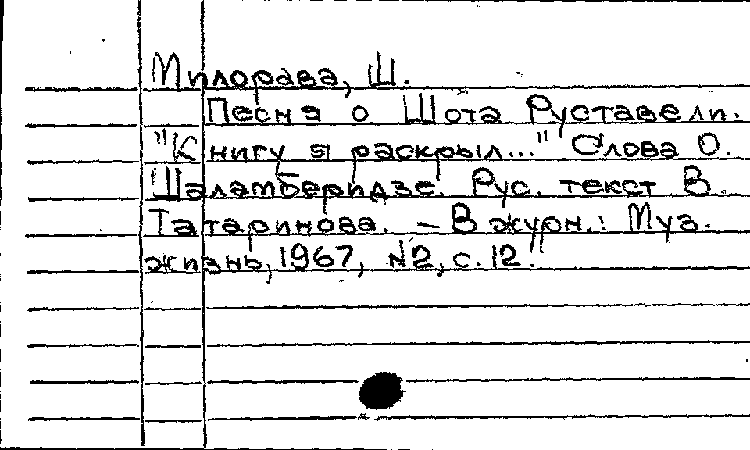 Милорава, Ш.
Песня о Шота Руставели.
"Книгу я раскрыл..." Слова О.
Шаламберидзе. Рус. текст В.
Татаринова. – В журн.: Муз.
жизнь, 1967, №2, с. 12.